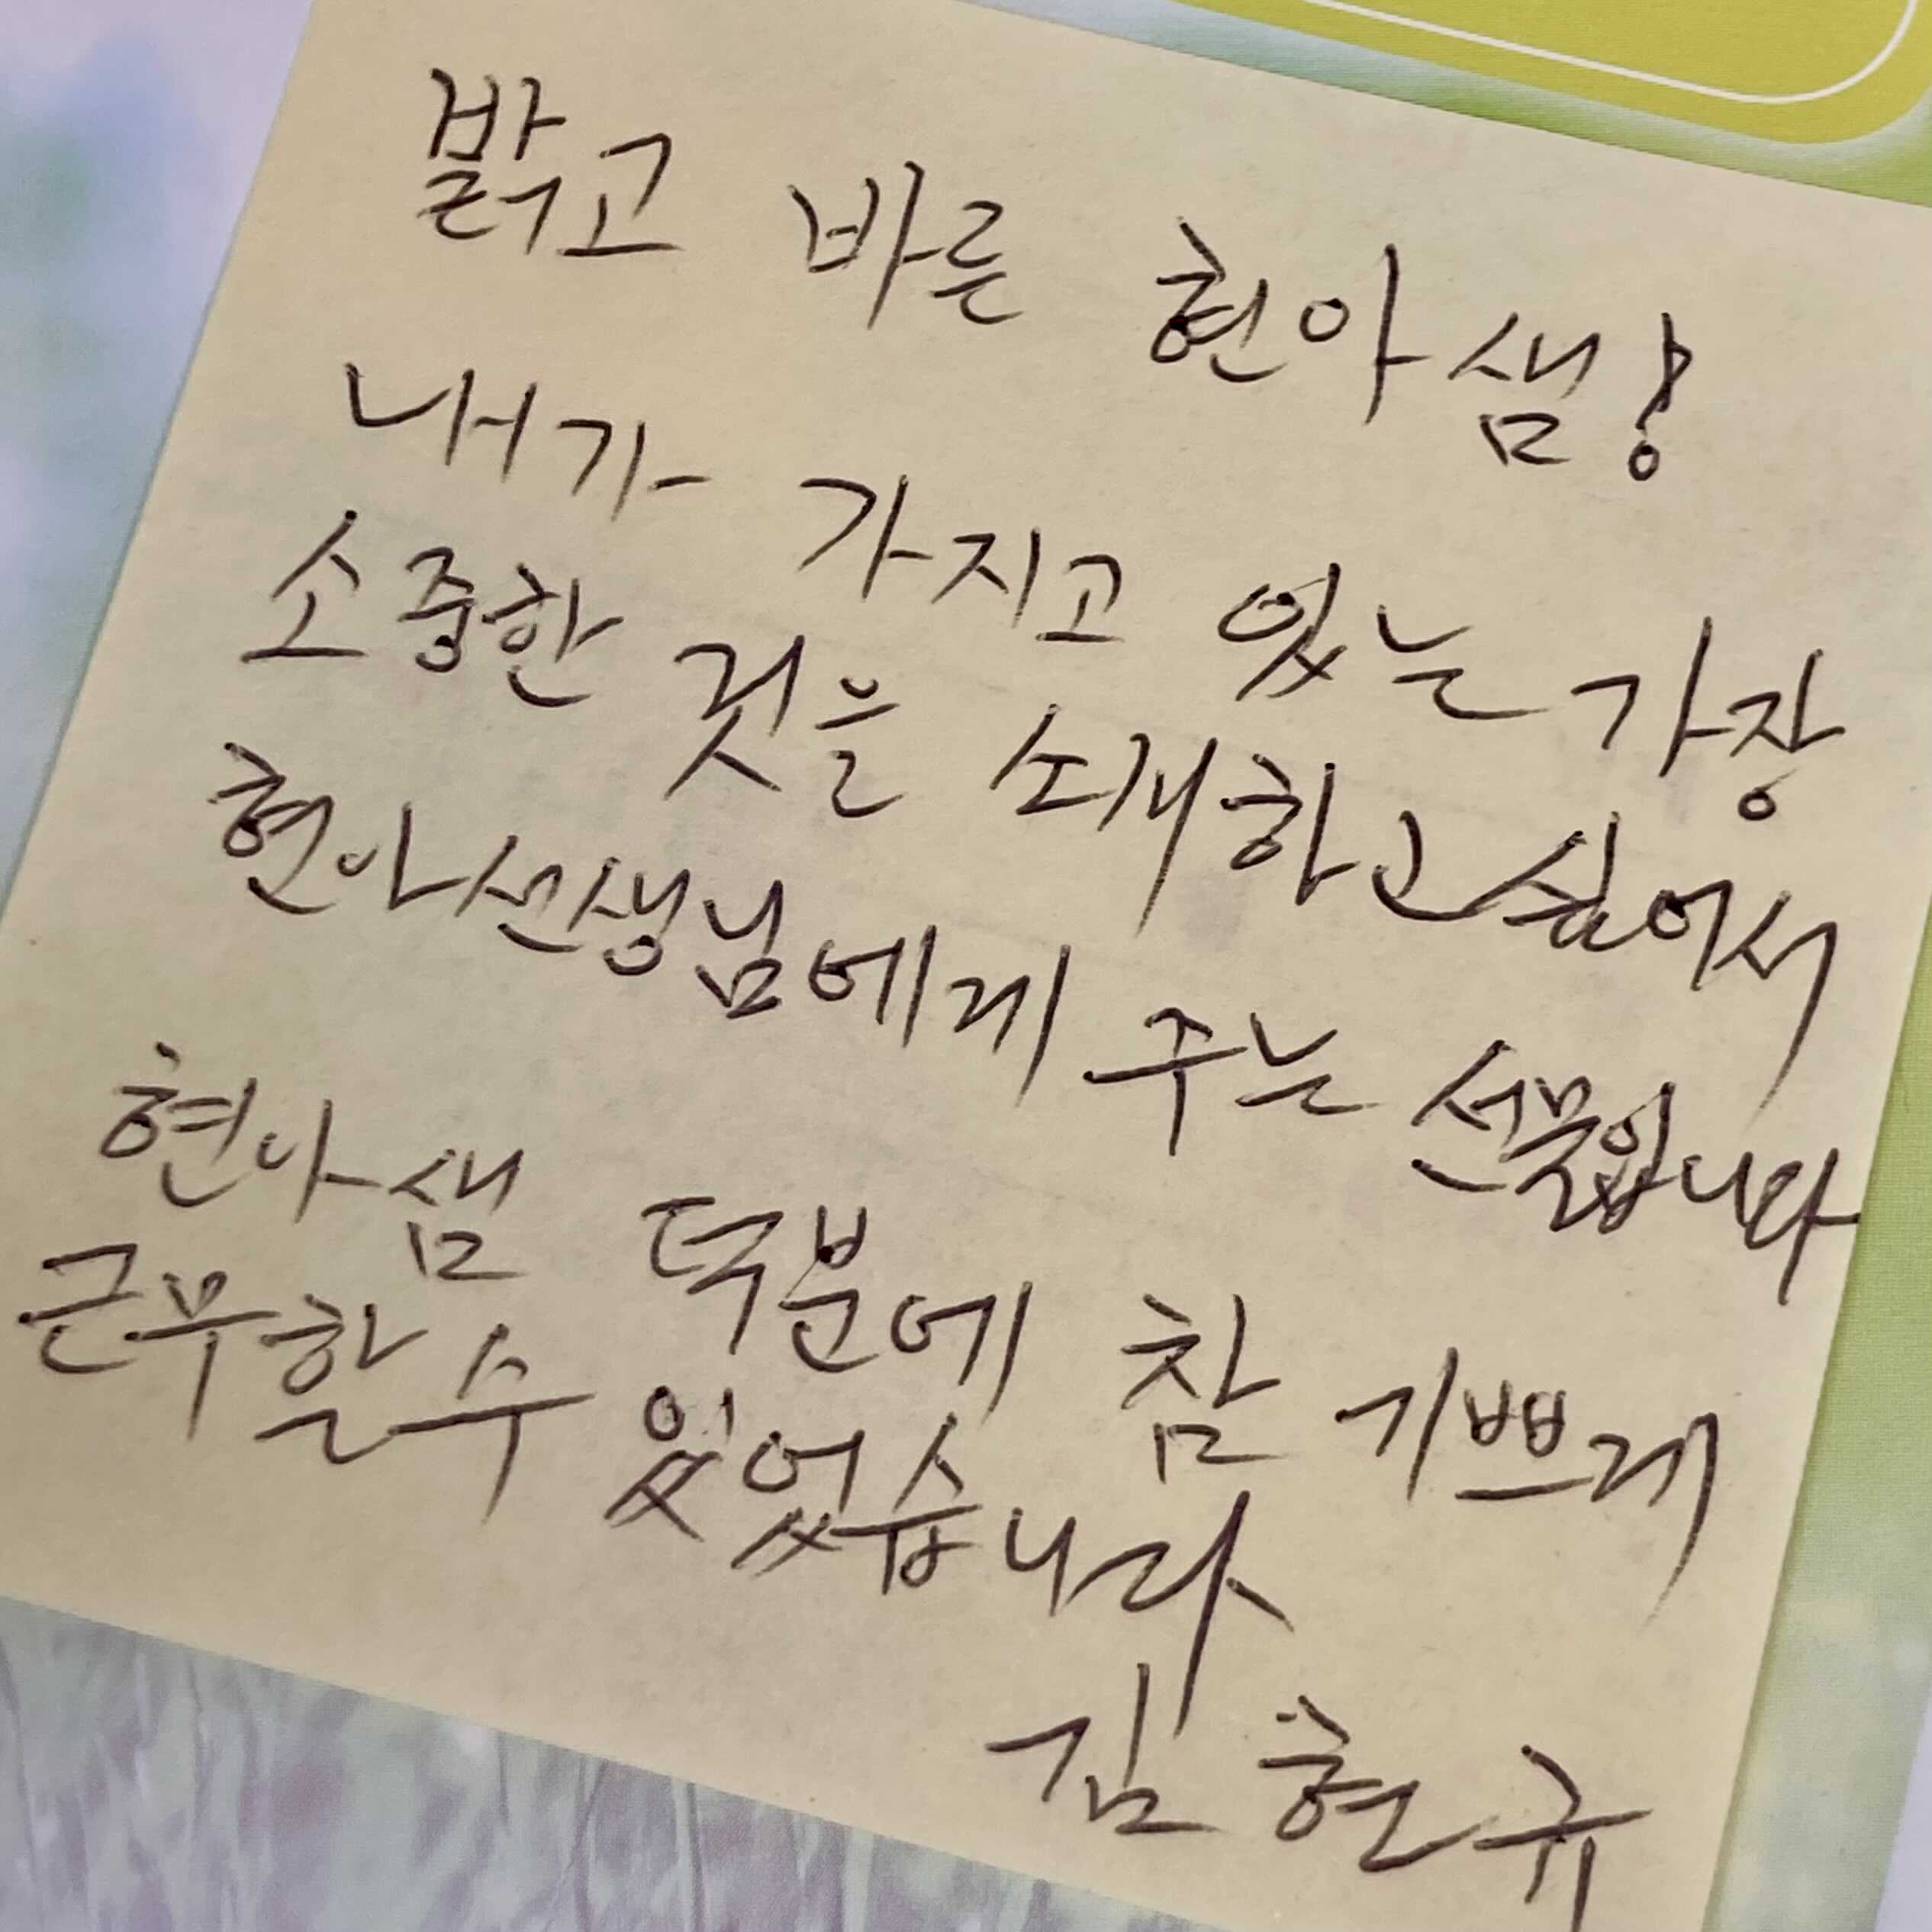 밝고 바른 현아샘!
내가 가지고 있는 가장
소중한 것을 소개하고 싶어서
현아선생님에게 주는 선물입니다
현아샘 덕분에 참 기쁘게
근무할 수 있었습니다
김현규